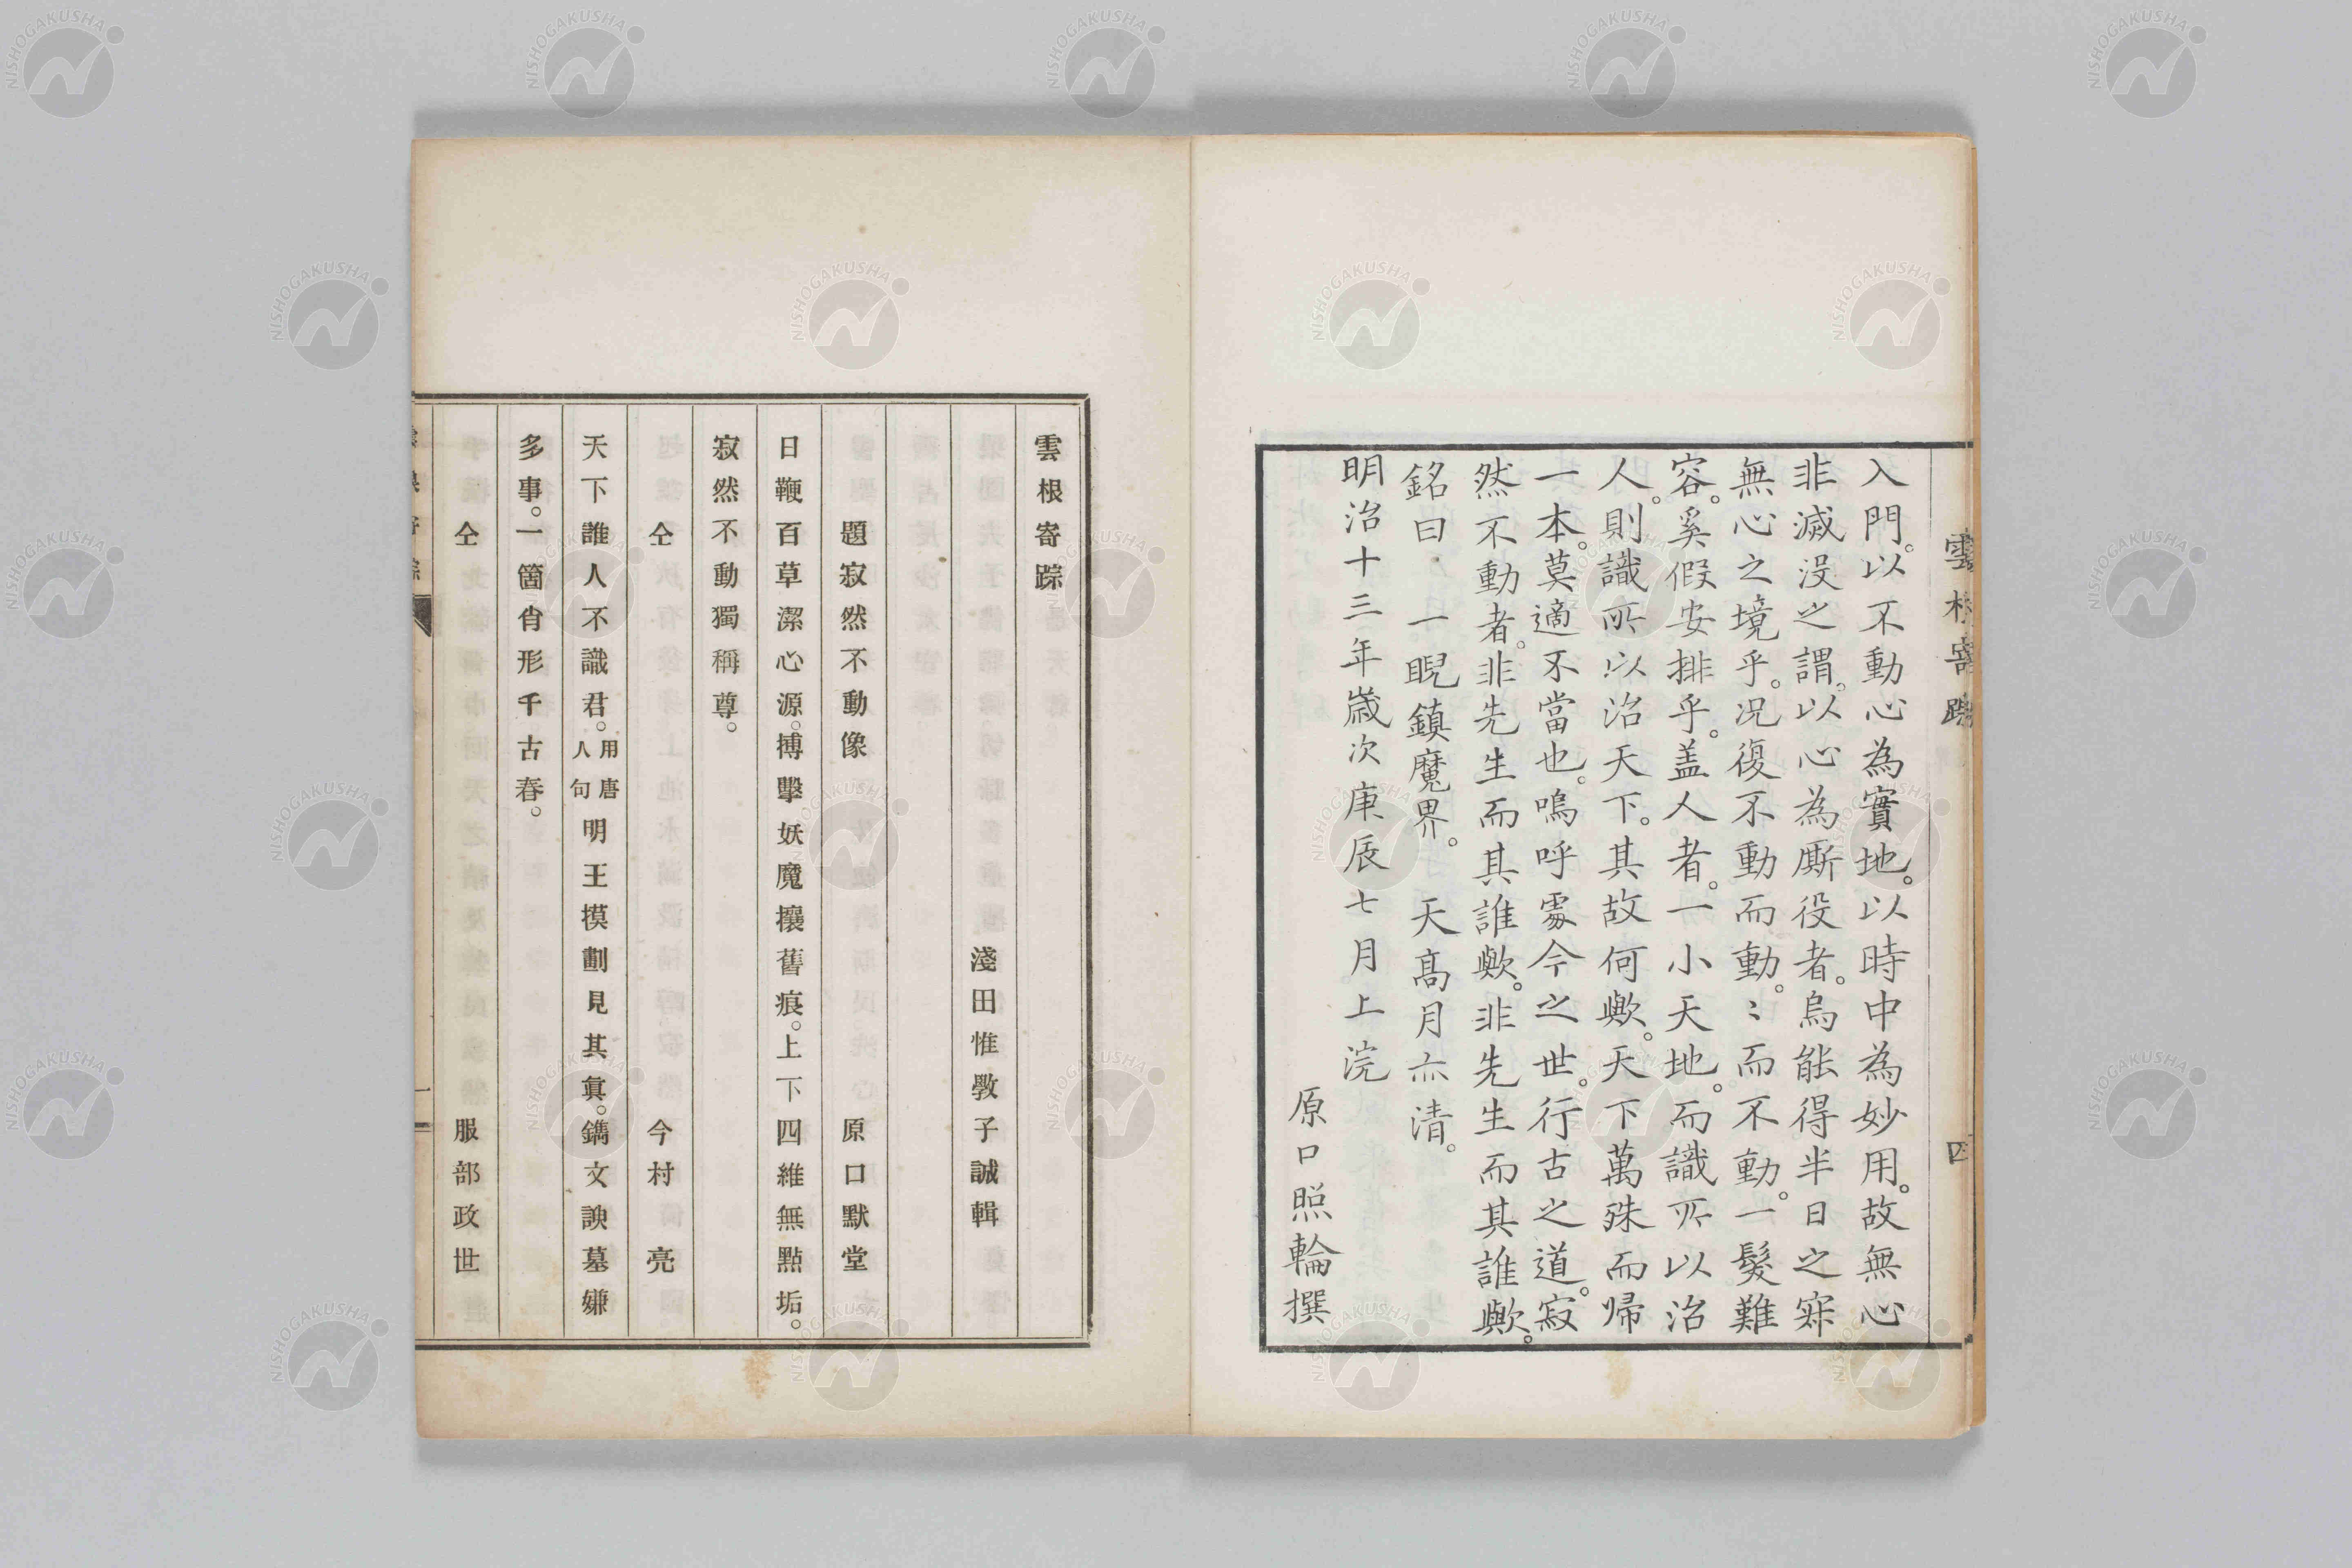 雲根寄踪
四
入門。以不動心為實地。以時中為妙用。故無心
非滅没之謂。以心為厮役者。烏能得半日之寐
無心之境乎。况復不動而動。〻而不動。一髮難
容。奚假安排乎。盖人者。一小天地。而識所以治
人。則識所以治天下。其故何歟。天下萬殊而歸
一本。莫適不當也。嗚呼處今之世。行古之道。寂
然不動者。非先生而其誰歟。非先生而其誰歟。
銘曰 一睨鎮魔界。 天髙月亦清。
明治十三年歳次庚辰七月上浣
原口照輪撰
雲根寄踪
淺田惟斆子誠輯
題寂然不動像 原口默堂
日鞭百草潔心源。搏擊妖魔攘舊痕。上下四維無點垢。
寂然不動獨稱尊。
仝 今村亮
天下誰人不識君。用唐人句明王摸劃見其眞。鐫文諛墓嫌
多事。一箇肖形千古春。
仝 服部政世
一
NISHOGAKUSHA